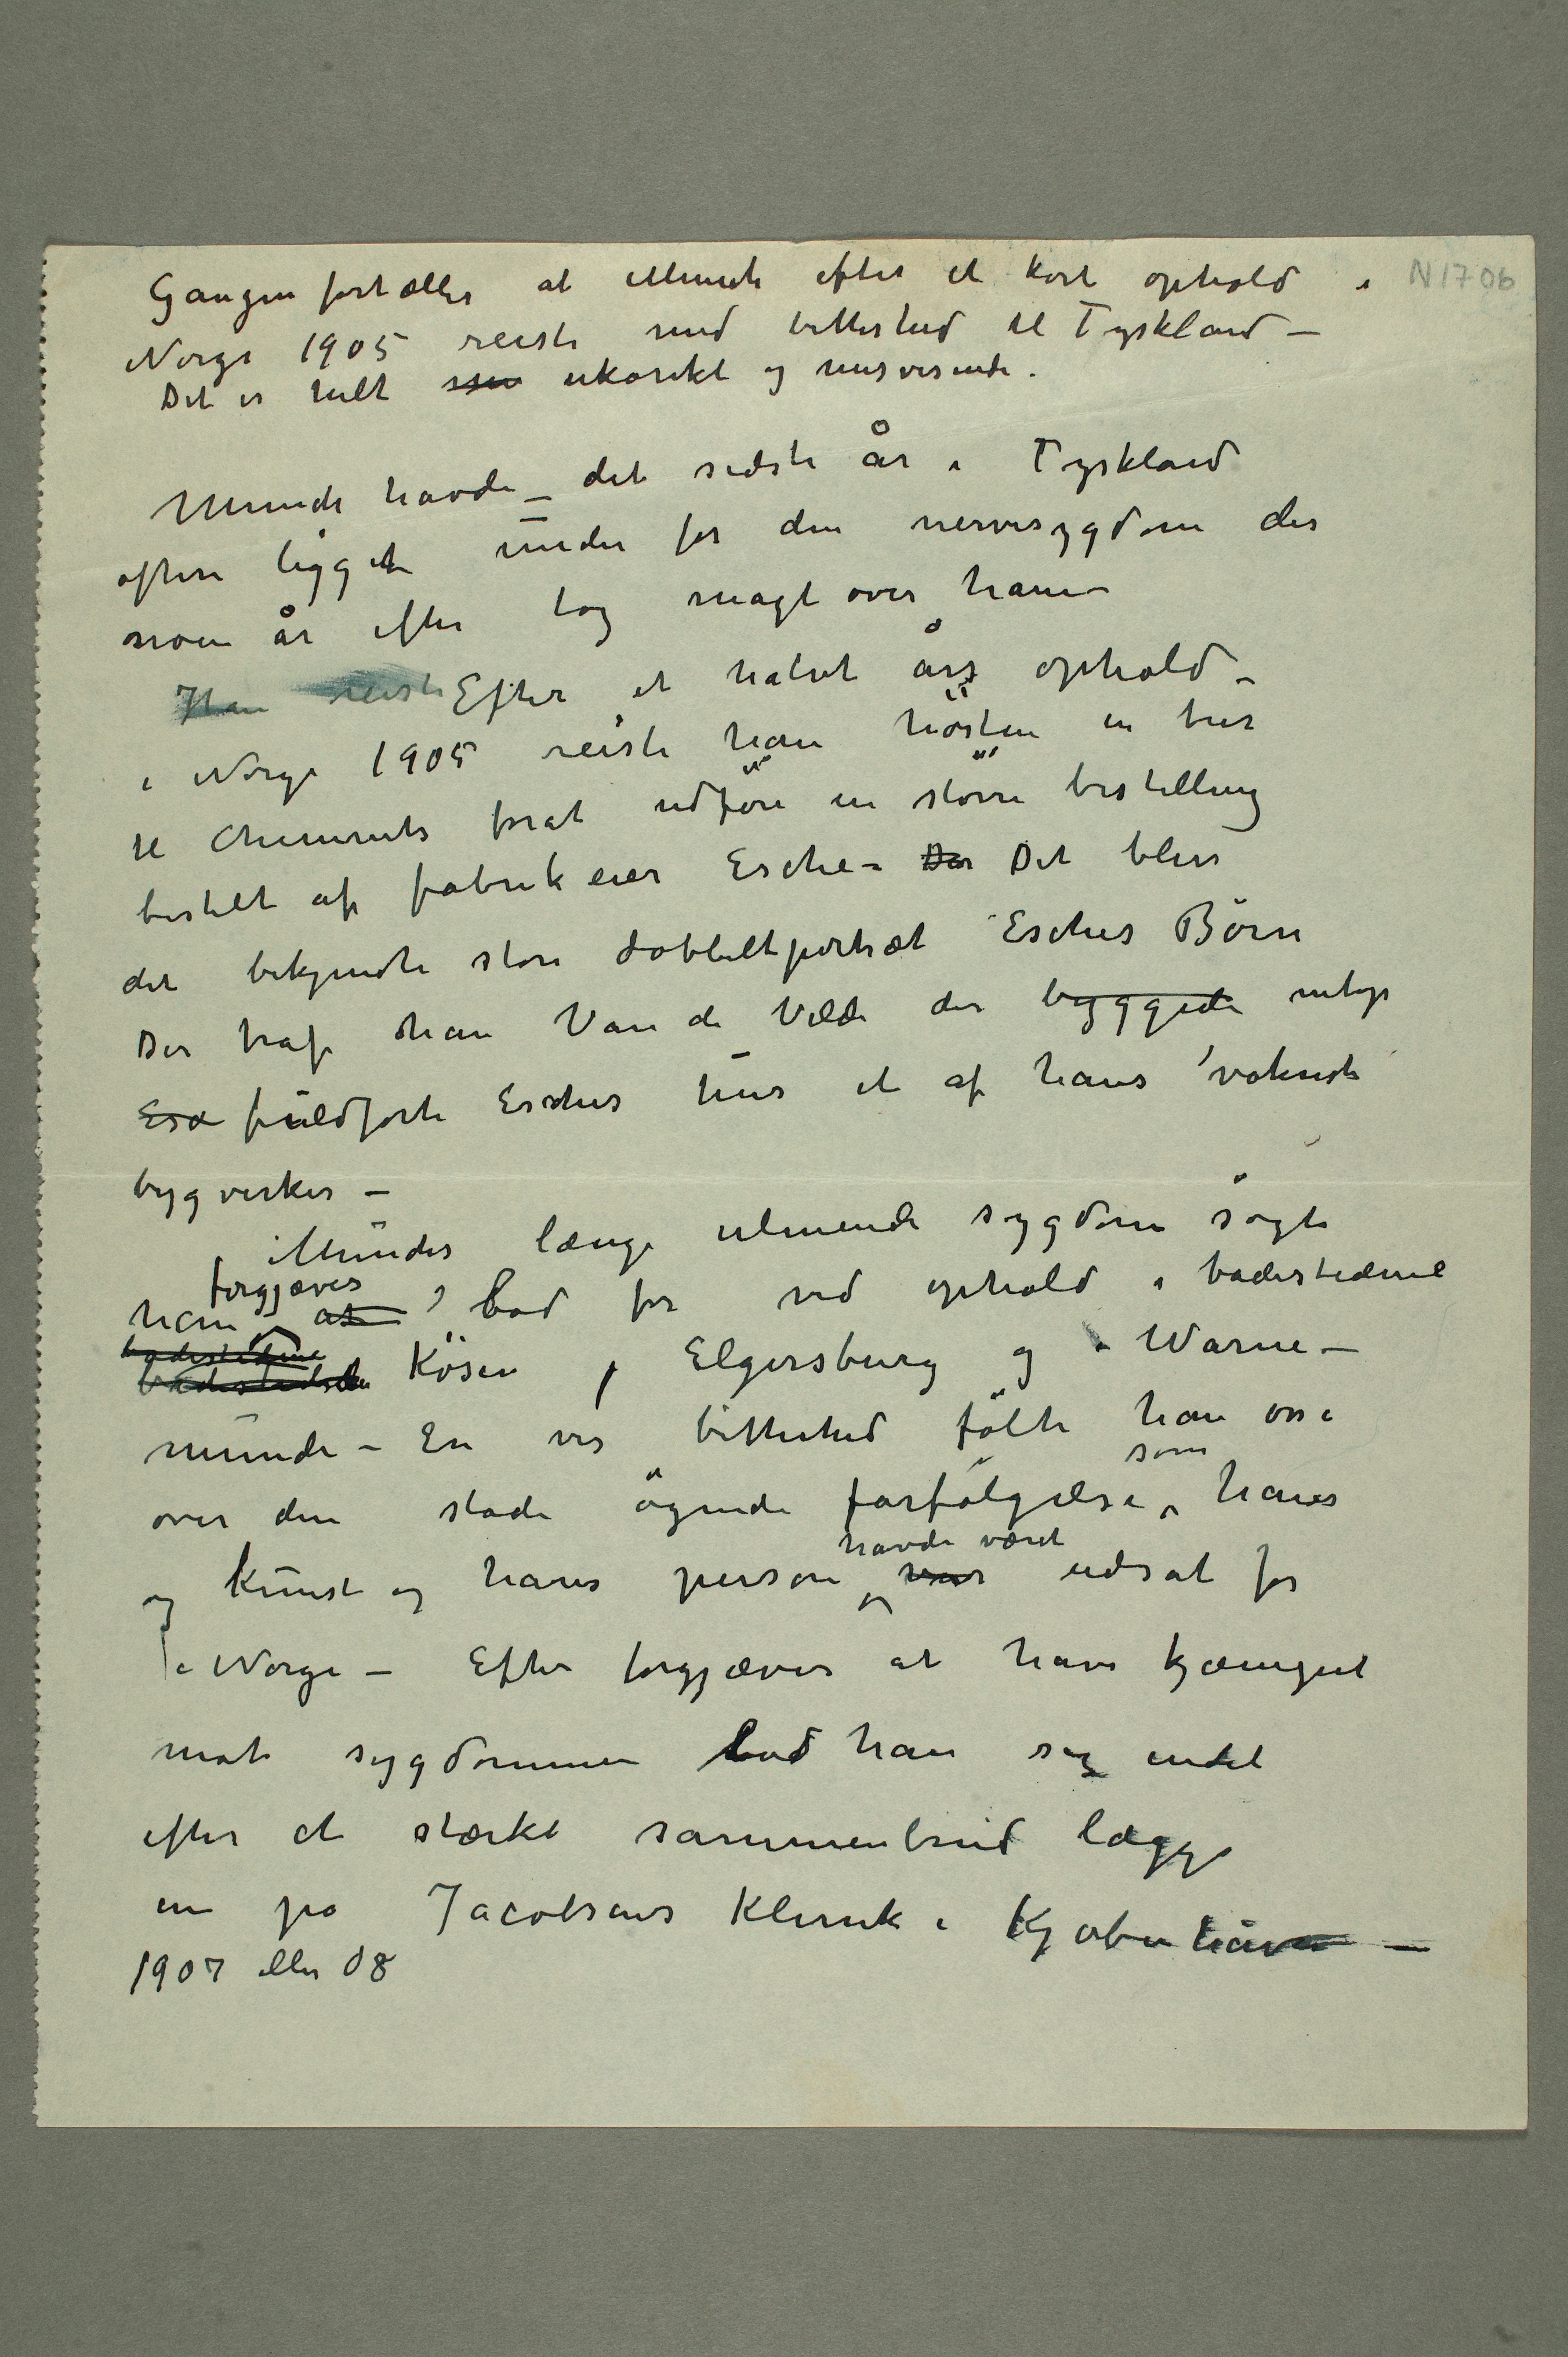 Gaugin fortæller at Munch efter et kort ophold i
N1706
Norge 1905 reiste med bitterhed til Tyskland –
Det er helt ukorekt og misvisende.
Munch havde – det sidste år i Tyskland
oftere ligget under for den nervesygdom der
noen år efter tog magt over ham
Han reiste Efter et halvt års ophold –
i Norge 1905 reiste han hösten en tur
til Chemnits forat udföre en större bestilling
bestilt af fabrikeier Esche – Der Det blev
det bekjendte store dobbeltportræt Esches Börn
Der traf han Van de Velde der byggede netop
Esc fuldførte Esches hus et af hans vakreste
bygverker –
Munchs længe ulmende sygdom søgte
forgjæves
han at bod for ved ophold i badestedene
badestedene
badestedet Kösen, Elgersburg og i Warne–
münde – En vis bitterhed fölte han osså
over den stadi ögende forfölgelse som hans
og Kunst og hans person havde været var udsat for
i Norge – Efter forgjæves at have kjæmpet
mot sygdommen lod han sig endel
efter et stærkt sammenbrud lægge
in på Jacobsens Klinik i Kjøbenhavn –
1907 eller 08